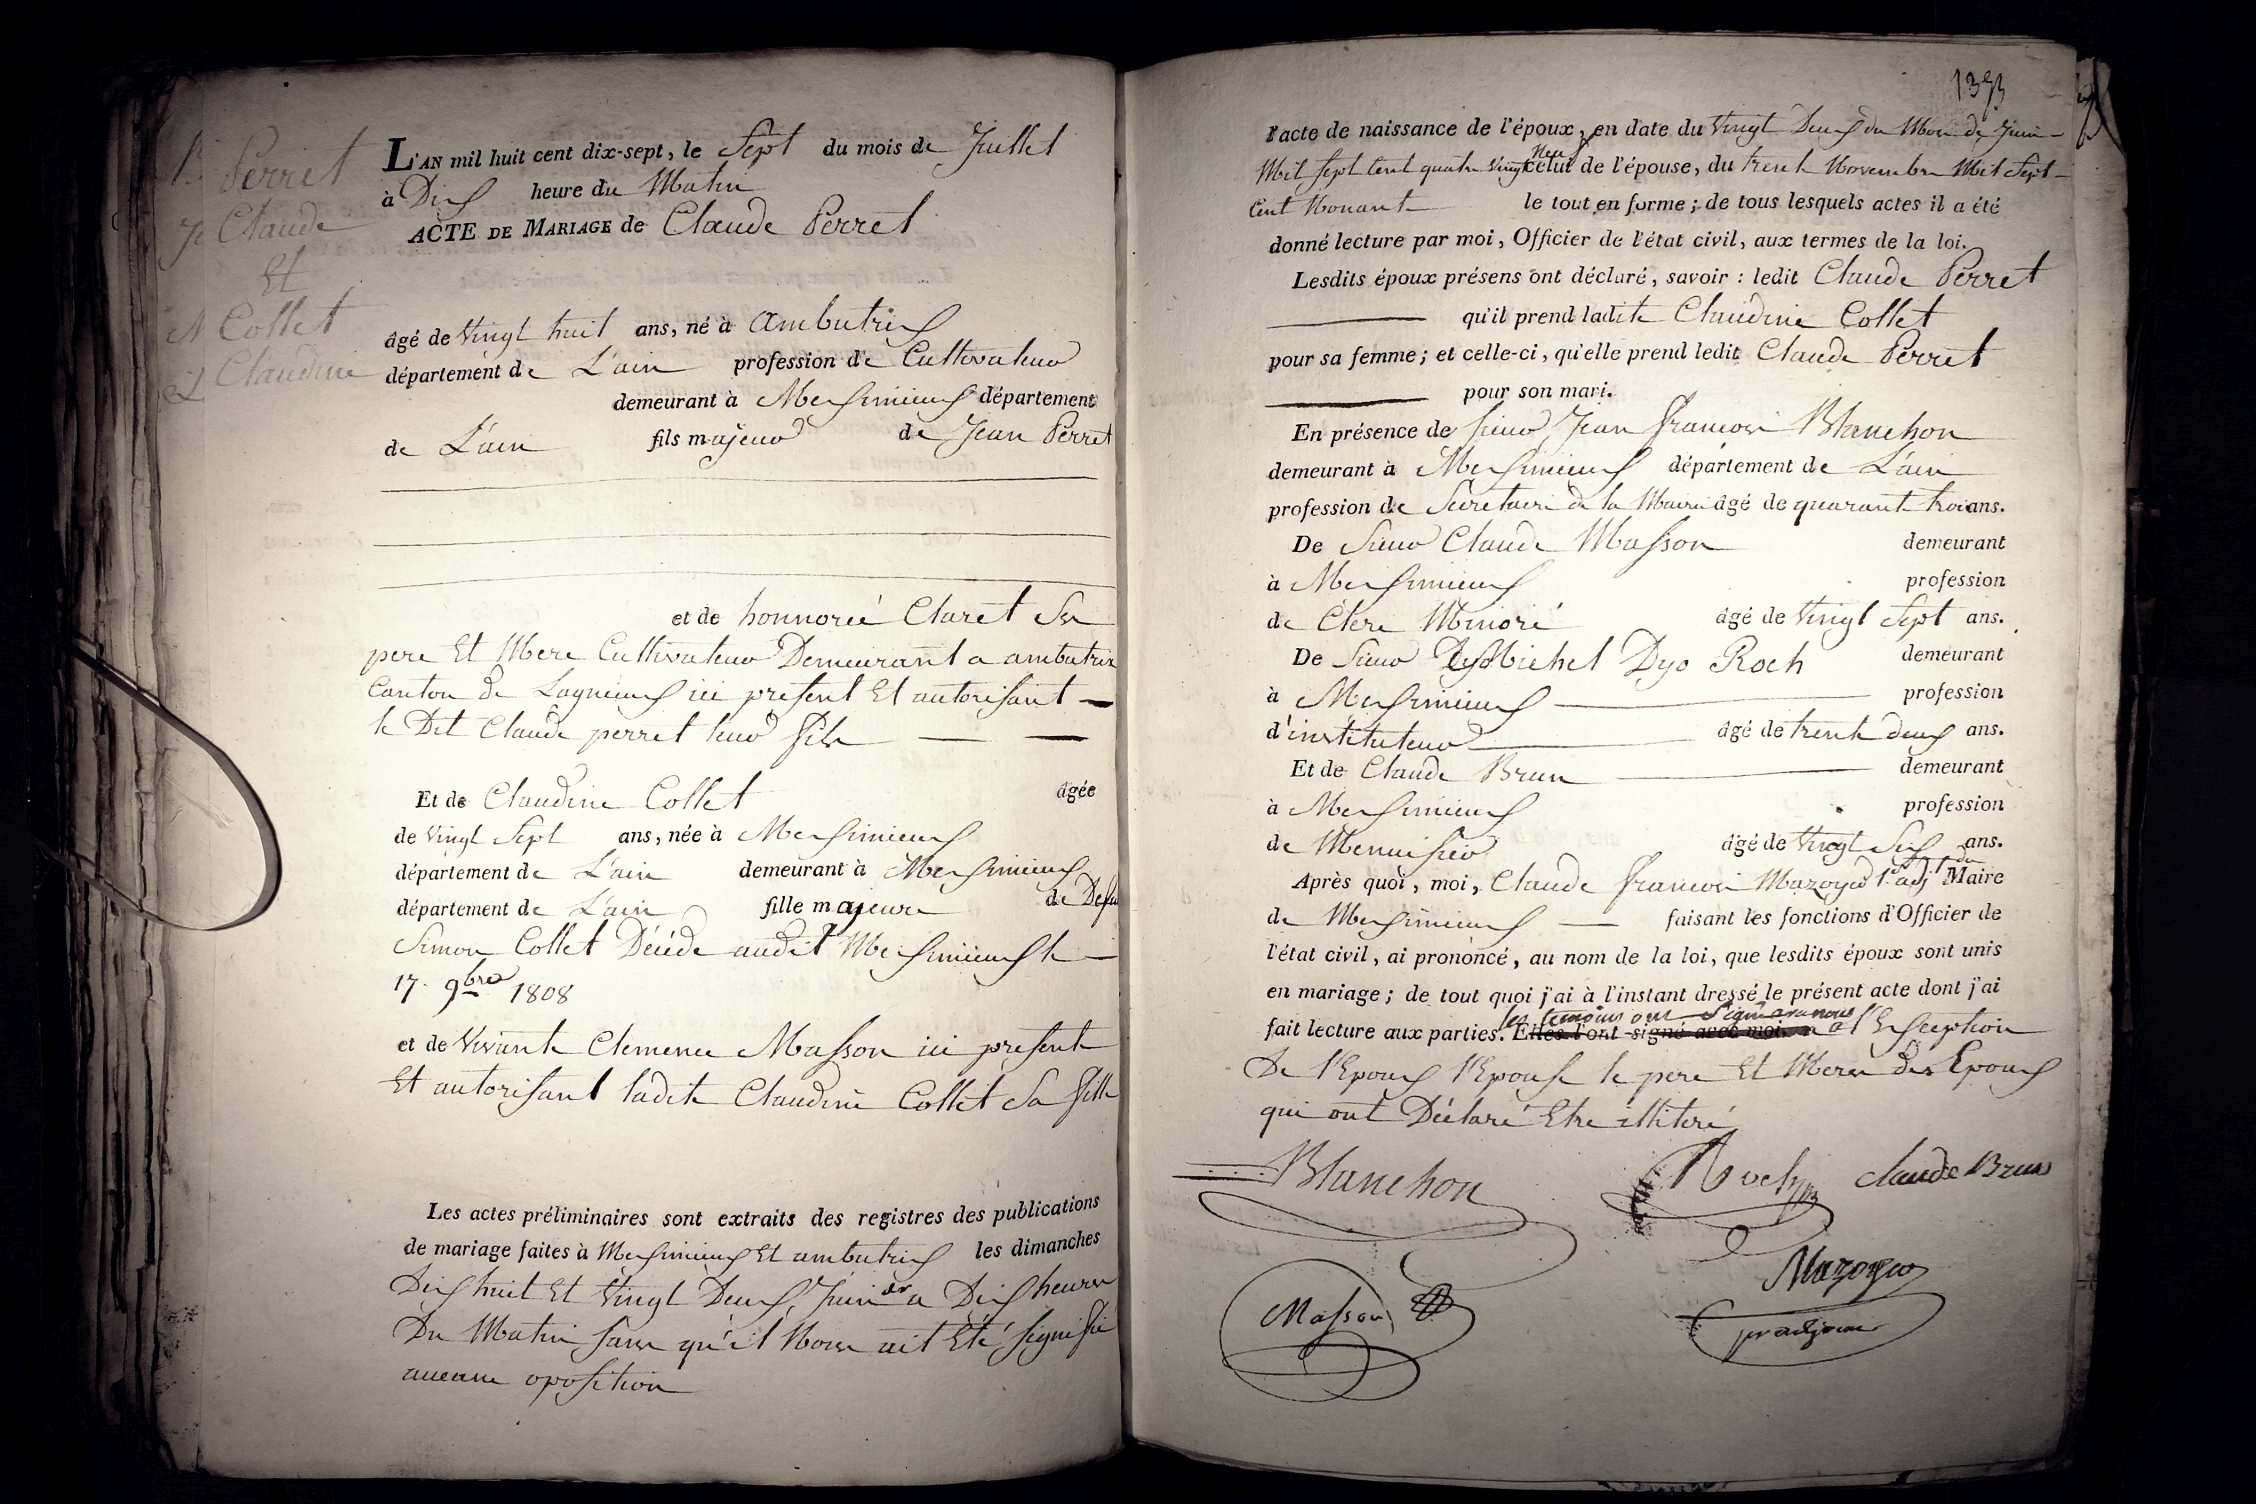 Perret
Claude
Et
Collet
Claudine
L'AN mil huit cent dix-sept, le Sept du mois de Juillet
à Dix heure du Matin
ACTE DE MARIAGE de Claude Perret
âgé de vingt huit ans, né à Ambutrix
département de L'ain profession de Cultivateur
demeurant à Meximieux département
de L'ain fils majeur de Jean Perret
et de honnorée Claret Ses
pere Et Mere Cultivateur Demeurant a ambutrix
Canton de Lagnieux ici present Et autorisant
le Dit Claude perret leur fils
Et de Claudine Collet âgée
de vingt Sept ans, née à Meximieux
département de L'ain demeurant à Meximieux
département de L'ain fille majeure de Defu
Simon Collet Décédé audit Meximieux le
17. 9bre 1808
et de vivante Clemence Masson ici présente
Et autorisant ladite Claudine Collet Sa fille
Les actes préliminaires sont extraits des registres des publications
de mariage faites à Meximieux Et ambutrix les dimanches
Dix huit Et Vingt Deux Juin a Dix heures
Du Matin Sans qu'il Nous ait Eté signifié
aucune oposition
l'acte de naissance de l'époux, en date du Vingt Deux du Mois de Juin
Mil Sept Cent quatre Vingt Neuf celui de l'épouse, du trente Novembre Mil Sept
Cent Nonante le tout en forme ; de tous lesquels actes il a été
donné lecture par moi, Officier de l'état civil, aux termes de la loi.
Lesdits époux présens ont déclaré, savoir : ledit Claude Perret
qu'il prend ladite Claudine Collet
pour sa femme ; et celle-ci, qu'elle prend ledit Claude Perret
pour son mari.
En présence de Sieur Jean François Blanchon
demeurant à Meximieux département de L'ain
profession de Secretaire de la Mairie âgé de quarante trois ans.
De Sieur Claude Masson demeurant
à Meximieux profession
de Clere Minoré âgé de Vingt Sept ans.
De Sieur Michel Dyo Roch demeurant
à Meximieux profession
d'instituteur âgé de trente deux ans.
Et de Claude Brun demeurant
à Meximieux profession
de Menuisier âgé de Vingt Six ans.
Après quoi, moi, Claude François Mazoyer 1er adjt du Maire
de Meximieux faisant les fonctions d'Officier de
l'état civil, ai prononcé, au nom de la loi, que lesdits époux sont unis
en mariage ; de tout quoi j'ai à l'instant dressé le présent acte dont j'ai
les temoins ont Signé avec nous
fait lecture aux parties. Elles l'ont signé avec moi a l'Exception
De l'Epoux l'Epouse le pere Et Mere des Epoux
qui ont Déclaré Etre illiteré
Blanchon
claude Brun
Masson
Mazoyer